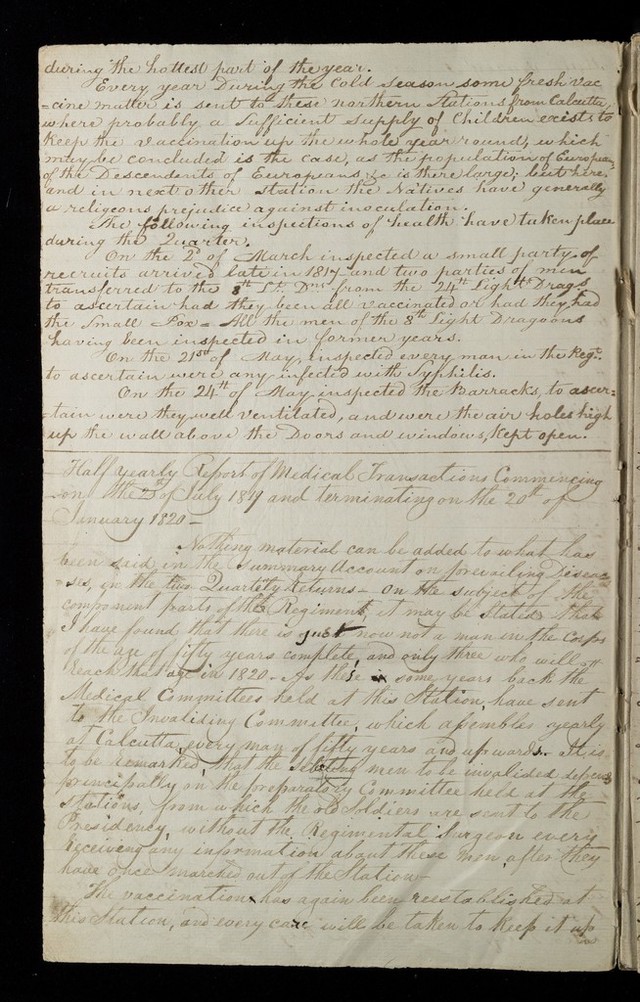 during the hottest part of the year.
Every year During the Cold Season some fresh Vac
=cine matter is sent to these northern Stations from Calcutta,
where probably a Sufficient Supply of Children exists to
Keep the Vaccination up the whole year round, which
may be concluded is the case, as the population of Europeans
of the Descendents of Europeans, &c is there large; but here,
and in next other Station the Natives have generally
a religeous prejudice against inoculation.
The following inspections of health have taken place
during the Quarter.
On the 2d of March inspected a small party of
recruits arrived late in 1817 and two parties of men
transferred to the 8th Lt. Dns from the 24th Light Drags
to ascertain had they been all vaccinated or had they had
the Small Pox = All the men of the 8th Light Dragoons
having been inspected in former years.
On the 21st of May, inspected every man in the Regt.
to ascertain were any infected with Syphilis.
On the 24th of May, inspected the Barracks, to ascer=
tain were they well ventilated, and were the air holes high
up the wall above the Doors and windows, Kept open.
Half yearly Report of Medical Transactions Commencing
on the of July 1819 and terminating on the 20th of
January 1820 –
Nothing material can be added to what has
been said in the Summary Account on prevailing Diseas
=es, in the two Quarterly Returns – On the subject of the
component parts of the Regiment, it may be Stated that
I have found that there is just now not a man in the Corps
of the age of fifty years complete, and only three who will
reach that age in 1820 – As these some years back the
Medical Committees held at this Station, have sent
to the Invaliding Committee, which assembles yearly
at Calcutta, every man of fifty years and upwards. It is
to be remarked, that the Selecting men to be invalided depends
principally on the preparatory Committee held at the
Stations, from which the old Soldiers are sent to the
Presidency, without the Regimental Surgeon every
receiving any information about these men, after they
have once marched out of the Station –
The vaccination has again been reestablished at
this Station, and every care will be taken to Keep it up